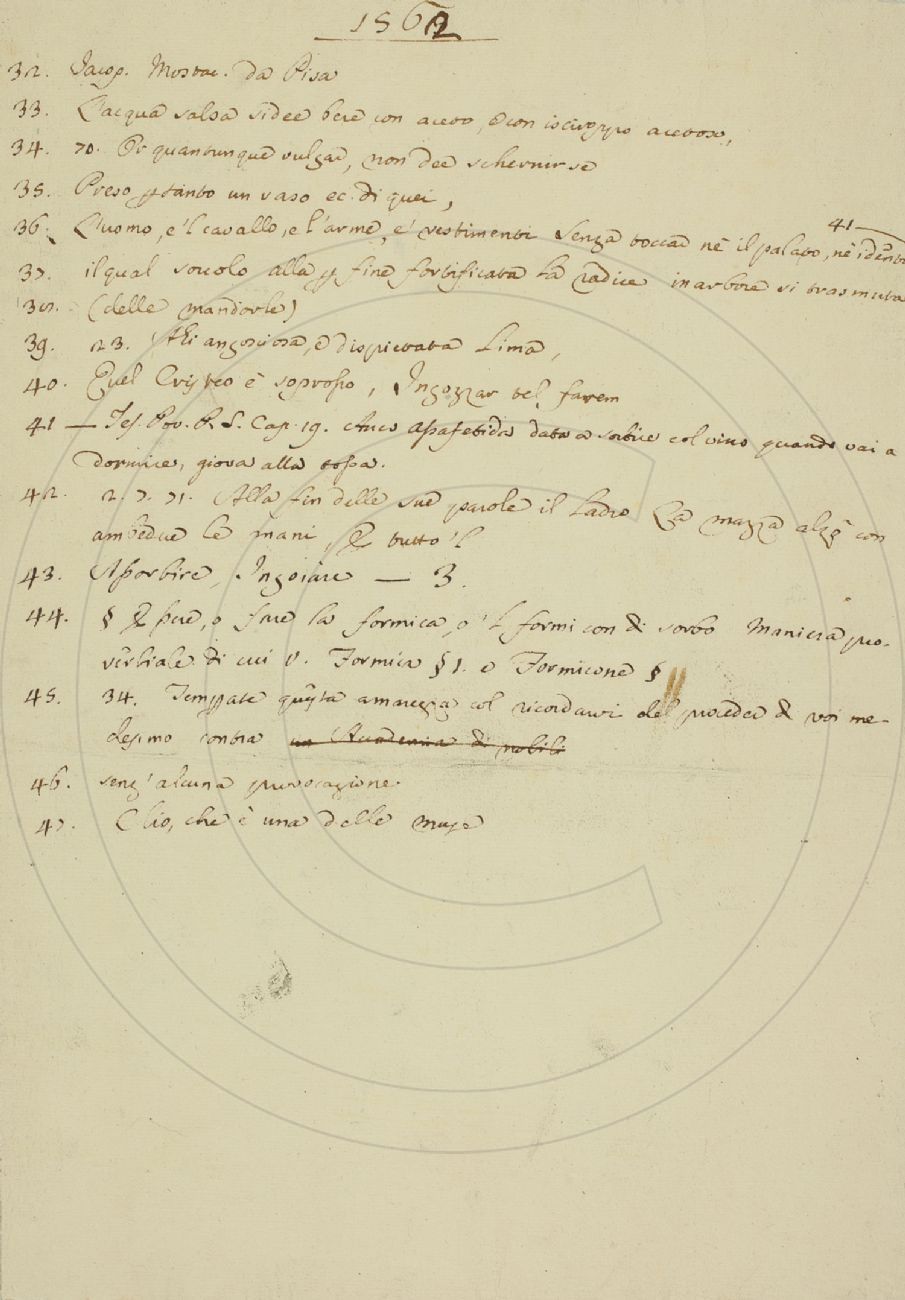 1562
32. Jacop. Mostac. da Pisa
33. L'acqua salsa si dee bere con aceto, e con isciroppo acetoso,
34. 70. Or quantunque vulgar, non dee schernirse
35. Preso ptanto un vaso ec. di quei,
36. L'uomo, e 'l cavallo, e l'arme, e' vestimenti senza toccar nè il palato, nè i denti
41 —
37. il qual sorcolo alla p fine fortificata la radice in arbore si trasmuta
38. (delle mandorle)
39. 23. Ahi angosciosa, e dispietata Lima,
40. Quel è sopr'osso, Ingozzar tel farem
41 — Tes. Pov. P. S. Cap. 19. Anco assafetida data a sorbire col vino quando vai a
dormire, giova alla tossa.
42. 2. 7. 71. Alla fin delle sue parole il ladro la mazza alzò con
ambedue le mani, tutto 'l
43. Assorbire, Ingoiare — 3.
44. § o fare la formica, o 'l formicon di sorbo Maniera pro-
verbiale di cui v. Formica § 1. e Formicone §
45. 34. Temprate questa amarezza col ricordarvi del proceder di voi me-
desimo contra un' Accademia di nobili
46. senz' alcuna provocazione
47. Clio, che è una delle muse